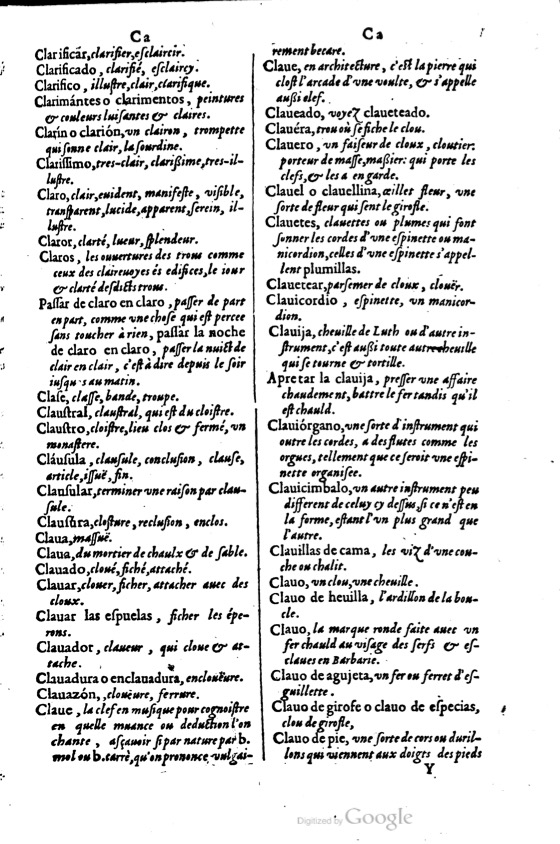 Ca
Clarificar, clarifier, esclaircir.
Clarificado, clarifié, esclaircy.
Clarifico, illustre, clair, clarifique.
Clarimántes o clarimentos, peintures
& couleurs luisantes & claires.
Clarín o clarión, vn clairon, trompette
qui sonne clair, la sourdine.
Clarissimo, tres-clair, clarißime, tres-il-
lustre.
Claro, clair, euident, manifeste, visible,
transparent, lucide, apparent, serein, il-
lustre.
Claror, clarté, lueur, splendeur.
Claros, les ouuertures des trous comme
ceux des claireuoyes és edifices, le iour
& clarté desdicts trous.
Passar de claro en claro, passer de part
en part, comme vne chose qui est percee
sans toucher à rien, passar la noche
de claro en claro, passer la nuict de
clair en clair, c'est à dire depuis le soir
iusqu's au matin.
Clase, classe, bande, troupe.
Claustral, claustral, qui est du cloistre.
Claustro, cloistre, lieu clos & fermé, vn
monastere.
Cláusula, clausule, conclusion, clause,
article, issuë, fin.
Clausular, terminer vne raison par clau-
sule.
Clausúra, closture, reclusion, enclos.
Claua, massuë.
Claua, du mortier de chaulx & de sable.
Clauado, cloué, fiché, attaché.
Clauar, clouer, ficher, attacher auec des
cloux.
Clauar las espuelas, ficher les épe-
rons.
Clauador, claueur, qui cloue & at-
tache.
Clauadura o enclauadura, encloueure.
Clauazón, cloüeure, ferrure.
Claue, la clef en musique pour cognoistre
en quelle muance ou deduction l'on
chante, asçauoir si par nature par b.
mol ou b. carrè, qu'on prononce vulgai-
Ca
rement becare.
Claue, en architecture, c'est la pierre qui
clost l'arcade d'vne voulte, & s'appelle
außi clef.
Claueado, voyez claueteado.
Clauéra, trou où se fiche le clou.
Clauero, vn faiseur de cloux, cloutier.
porteur de masse, maßier: qui porte les
clefs, & les a en garde.
Clauel o clauellina, œillet fleur, vne
sorte de fleur qui sent le girofle.
Clauetes, clauettes ou plumes qui font
sonner les cordes d'vne espinette ou ma-
nicordion, celles d'vne espinette s'appel-
lent plumillas.
Clauetear, parsemer de cloux, clouër.
Clauicordio, espinette, vn manicor-
dion.
Clauija, cheuille de Luth ou d'autre in-
strument, c'est aussi toute autre cheuille
qui se tourne & tortille.
Apretar la clauija, presser vne affaire
chaudement, battre le fer tandis qu'il
est chauld.
Clauiórgano, vne sorte d'instrument qui
outre les cordes, a des flutes comme les
orgues, tellement que ce seroit vne espi-
nette organisee.
Clauicimbalo, vn autre instrument peu
different de celuy cy dessus, si ce n'est en
la forme, estant l'vn plus grand que
l'autre.
Clauillas de cama, les viz d'vne cou-
che ou chalit.
Clauo, vn clou, vne cheuille.
Clauo de heuilla, l'ardillon de la bou-
cle.
Clauo, la marque ronde faite auec vn
fer chauld au visage des serfs & es-
claues en Barbarie.
Clauo de agujeta, vn fer ou ferret d'es-
guillette.
Clauo de girofe o clauo de especias,
clou de girofle,
Clauo de pie, vne sorte de cors ou duril-
lons qui viennent aux doigts des pieds
Y
Digitized by Google